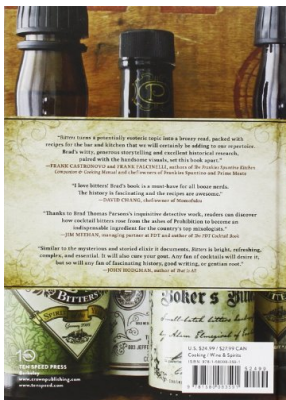 "Bitters turns a potentially esoteric topic into a breezy read, packed with
recipes for the bar and kitchen that we will certainly be adding to our repertoire.
Brad's witty, generous storytelling and excellent historical research,
paired with the handsome visuals, set this book apart."
—FRANK CASTRONOVO and FRANK FALCINELLI, authors of The Frankies Spuntino Kitchen
Companion & Cooking Manual and chef-owners of Frankies Spuntino and Prime Meats
"I love bitters! Brad's book is a must-have for all booze nerds.
The history is fascinating and the recipes are awesome."
—DAVID CHANG, chef/owner of Momofuku
"Thanks to Brad Thomas Parson's inquisitive detective work, readers can discover
how cocktail bitters rose from the ashes of Prohibition to become an
indispensable ingredient for the country's top mixologists."
—JIM MEEHAN, managing partner at PDT and author of The PDT Cocktail Book
"Similar to the mysterious and storied elixir it documents, Bitters is bright, refreshing,
complex, and essential. It will also cure your gout. Any fan of cocktails will desire it,
but so will any fan of fascinating history, good writing, or gentian root."
—JOHN HODGMAN, author of That Is All
BITTERS
Boker's
TEN SPEED PRESS
Berkeley
www.crownpublishing.com
www.tenspeed.com
U.S. $24.99 / $27.99 CAN
Cooking / Wine & Spirits